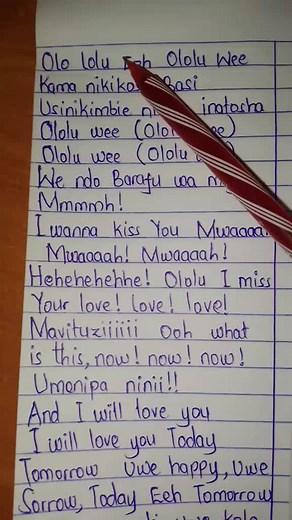 Olo lolu Ooh Ololu Wee
Kama nikiko Basi
Usinikimbie inatosha
Ololu wee (Ololu wee)
Ololu wee (Ololu
We ndo Barafu wa
Mmmmh!
I wanna kiss You Mwaaaah
Mwaaaah! Mwaaaah!
Hehehehehhe! Ololu I miss
Your love! love! love!
Mavituziiiiii Ooh what
is this, now! now! now!
Umenipa ninii!!
And I will love you
I will love you Today
Tomorrow Uwe happy, Uwe
Sorrow, Today Eeh Tomorrow